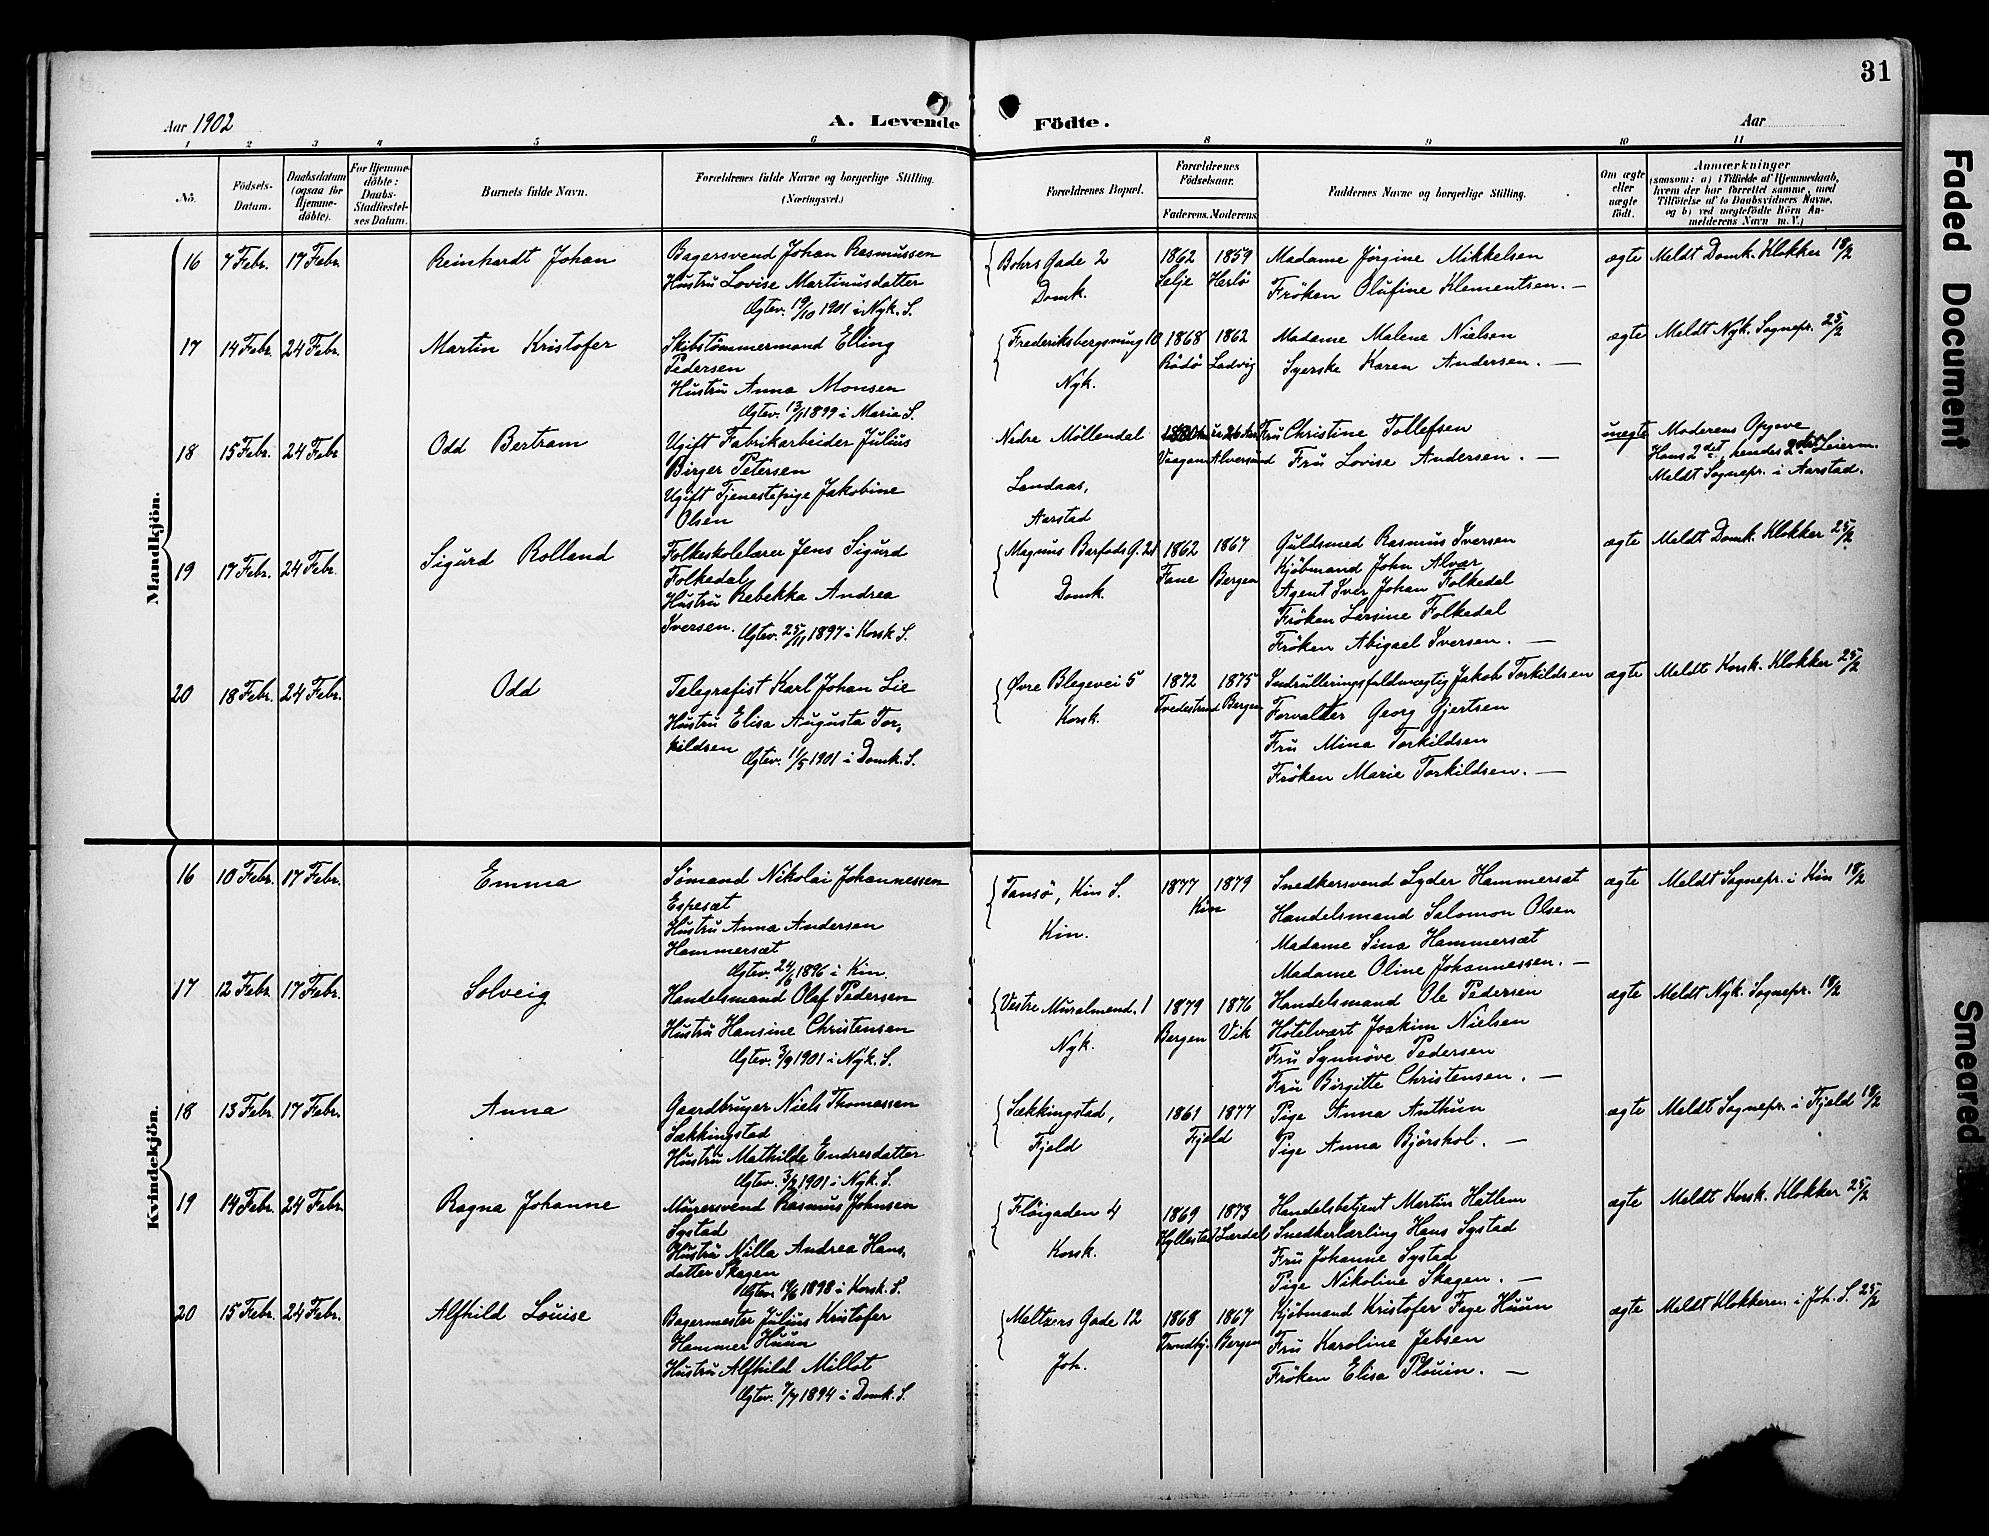 31
Aar 1902
A. Levende Födte.
Aar
1 2 3 4 5 6 8 9 10 11
No.
Födsels-Datum.
Daabsdatum (ogsaa for Hjemme-döbte).
For Hjemme-döbte: Daabs-Stadfæstel-ses Datum.
Barnets fulde Navn.
Forældrenes fulde Navne og borgerlige Stilling. (Næringsvei.)
Forældrenes Bopæl.
Forældrenes Födselsaar.
Faderens. Moderens.
Faddernes Navne og borgerlige Stilling.
Om ægte eller uægte födt.
Anmærkninger
(saasom: a) i Tilfælde af Hjemmedaab, hvem der har forrettet samme, med Tilföielse af to Daabsvidners Navne, og b) ved uægtefödte Börn An-melderens Navn m. V.)
Mandkjön.
16 7 Febr. 17 Febr. Reinhardt Johan
Bagersvend Johan Rasmussen
Hustru Lovise Martinusdatter
Ægtev. 19/10 1901 i Nyk. S.
Bohrs Gade 2
Domk.
1862 1859
Selje Herlö
Madame Jörgine Mikkelsen
Fröken Olufine Klementsen. —
ægte Meldt Domk. Klokker 18/2
17 14 Febr. 24 Febr. Martin Kristofer
Skibstömmermand Elling
Pedersen
Hustru Anna Monsen
Ægtev. 13/1 1899 i Maria S.
Frederiksbergsmug 10
Nyk.
1868 1862
Rödö Ladvig
Madame Malene Nielsen
Syerske Karen Andersen. —
ægte Meldt Nyk. Sognepr. 25/2
18 15 Febr. 24 Febr. Odd Bertram
Ugift Fabrikarbeider Julius
Birger Petersen
Ugift Tjenestepige Jakobine
Olsen
Nedre Möllendal
Landaas,
Aarstad
Vaagen Alversund
Fru Christine Tollefsen
Fru Lovise Andersen. —
uægte Moderens Opgave
Hans 2det, hendes 2det Leierm.
Meldt Sognepr. i Aarstad.
19 17 Febr. 24 Febr. Sigurd Rolland
Folkeskolelærer Jens Sigurd
Folkedal
Hustru Rebekka Andrea
Iversen. Ægtev. 25/11 1897 i Korsk. S.
Magnus Barfods G. 21
Domk.
1862 1867
Fane Bergen
Guldsmed Rasmus Iversen
Kjöbmand John Alvær
Agent Iver Johan Folkedal
Fröken Larsine Folkedal
Fröken Abigael Iversen. —
ægte Meldt Domk. Klokker 25/2
20 18 Febr. 24 Febr. Odd
Telegrafist Karl Johan Lie
Hustru Elisa Augusta Tor-
kildsen
Ægtev. 11/5 1901 i Domk. S.
Øvre Blegevei 5
Korsk.
1872 1875
Tvedestrand Bergen
Indrulleringsfuldmægtig Jakob Torkildsen
Forvalter Georg Gjertsen
Fru Mina Torkildsen
Fröken Marie Torkildsen. —
ægte Meldt Korsk. Klokker 25/2
Kvindekjön.
16 10 Febr. 17 Febr. Emma
Sömand Nikolai Johannessen
Espesæt
Hustru Anna Andersen
Hammersæt
Ægtev. 24/6 1896 i Kin.
Tansö, Kin S.
Kin.
1877 1879
Kin
Snedkersvend Lyder Hammersæt
Handelsmand Salomon Olsen
Madame Sina Hammersæt
Madame Oline Johannessen. —
ægte Meldt Sognepr. i Kin 18/2
17 12 Febr. 17 Febr. Solveig
Handelsmand Olaf Pedersen
Hustru Hansine Christensen
Ægtev. 3/9 1901 i Nyk. S.
Vestre Muralmend. 1
Nyk.
1879 1876
Bergen Vik
Handelsmand Ole Pedersen
Hotelvært Joakim Nielsen
Fru Synnöve Pedersen
Fru Birgitte Christensen. —
ægte Meldt Nyk. Sognepr. 18/2
18 13 Febr. 17 Febr. Anna
Gaardbruger Niels Thomassen
Sækkingstad
Hustru Mathilde Endresdatter
Ægtev. 3/2 1901 i Nyk. S.
Sækkingstad,
Fjeld
1861 1877
Fjeld
Pige Anna Anthun
Pige Anna Björshol. —
ægte Meldt Sognepr. i Fjeld 18/2
19 14 Febr. 24 Febr. Ragna Johanne
Murersvend Rasmus Johnsen
Systad
Hustru Nilla Andrea Hans-
datter Skagen
Ægtev. 19/6 1898 i Korsk. S.
Flöigaden 4
Korsk.
1869 1873
Hyllestad Lærdal
Handelsbetjent Martin Hatlem
Snedkerlærling Hans Systad
Fru Johanne Systad
Pige Nikoline Skagen. —
ægte Meldt Korsk. Klokker 25/2
20 15 Febr. 24 Febr. Alfhild Louise
Bagermester Julius Kristofer
Hammer Huun
Hustru Alfhild Millot
Ægtev. 7/7 1894 i Domk. S.
Meltzers Gade 12
Joh.
1868 1867
Trondhj. Bergen
Kjöbmand Kristofer Fage Huun
Fru Karoline Jebsen
Fröken Elisa Plouin. —
ægte Meldt Klokkeren i Joh. S. 25/2
Faded Document
Smeared